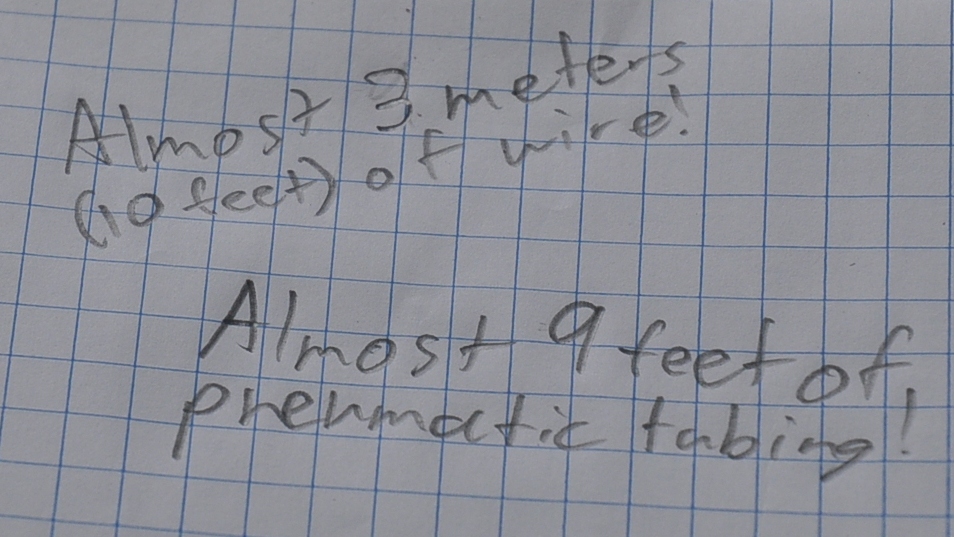 Almost 3 meters
(10 feet) of wire!
Almost 9 feet of
pneumatic tubing!